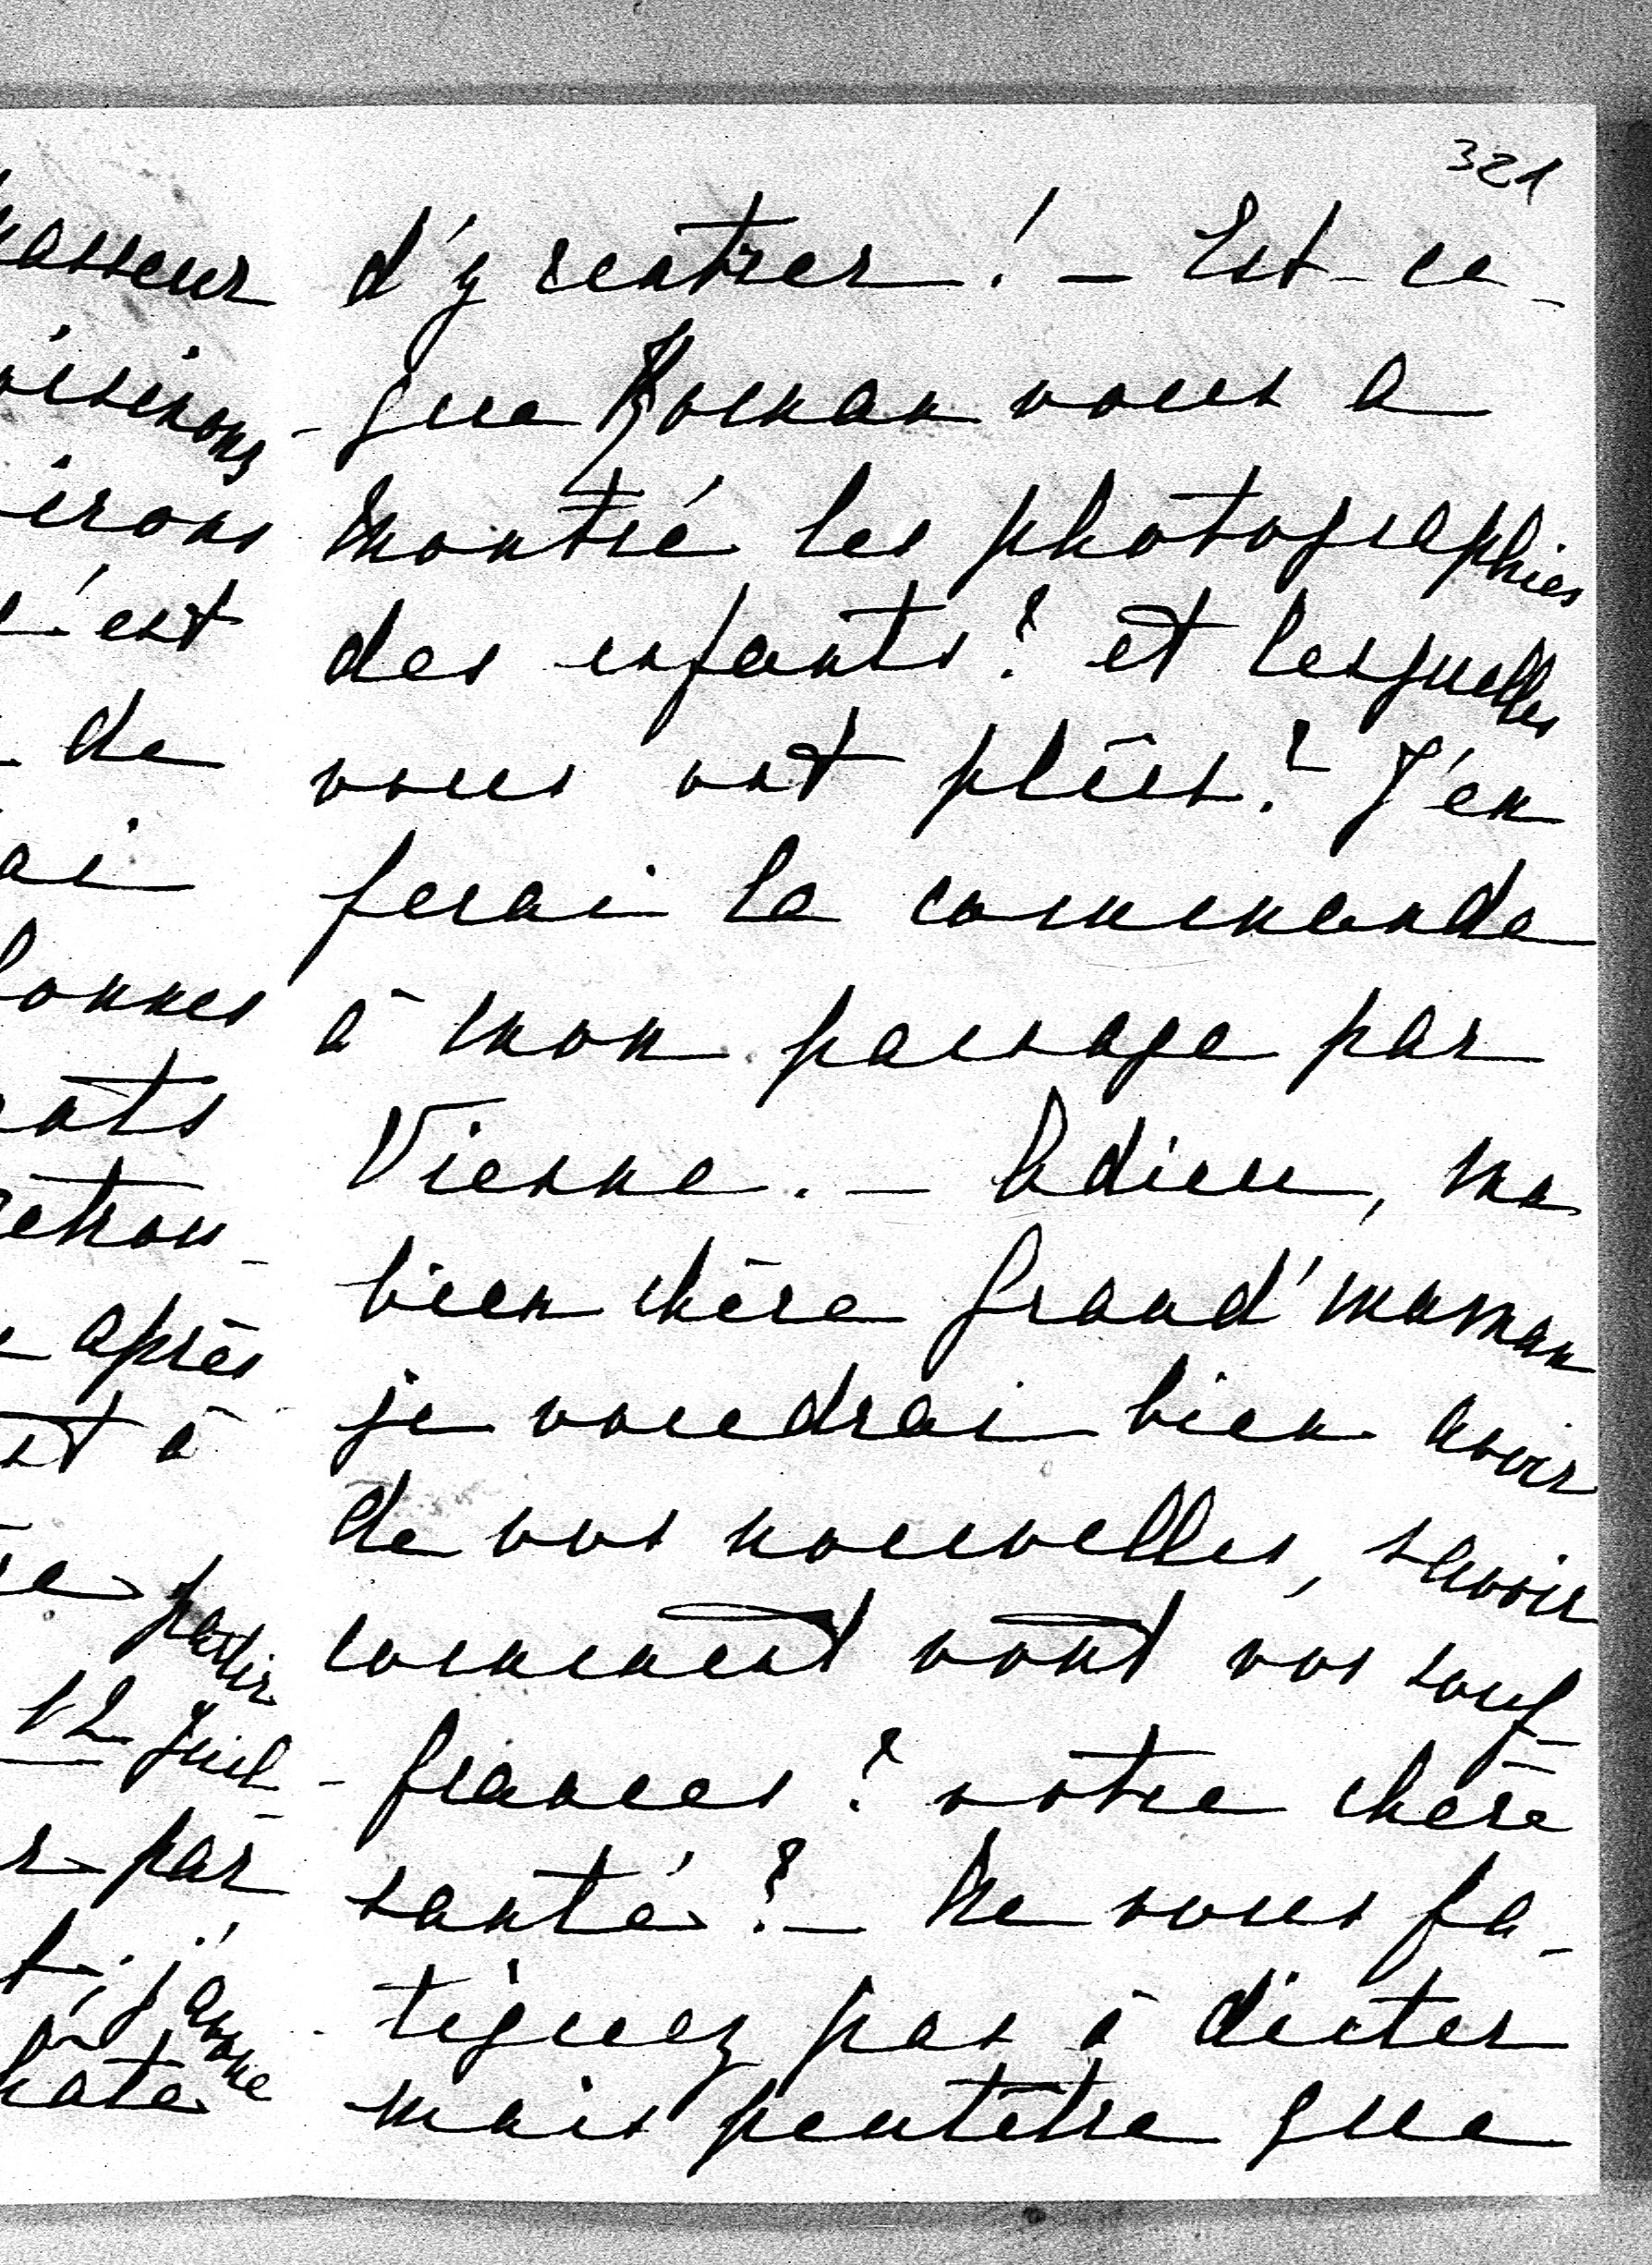 321
d'y rentrer! — Est-ce-
que Roman vous a
montré les photographies
des enfants? et lesquelles
vous ont plûes? J'en
ferai la commande
à mon passage par
Vienne. — Adieu, ma
bien chère Grand'maman
je voudrai bien avoir
de vos nouvelles, savoir
comment vont vos souf-
frances? votre chère
santé? — Ne vous fa-
tiguez pas à dicter
mais peutêtre que
asseur
irons
c'est
de
ai
bonnes
ats
retrou-
après
à
partir
12 Juil-
par
j'avoue
hate